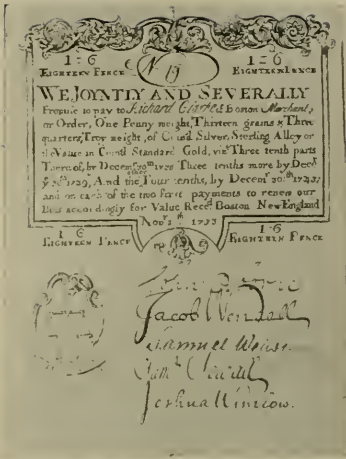 1=6 1=6
EIGHTEEN PENCE N EIGHTEEN PENCE
WE JOYNTLY AND SEVERALLY
Promise to pay to Richard Clarke Boston Merchant,
or Order, One Penny weight, Thirteen grains & Three
quarters, Troy weight, of Silver, Sterling Alloy or
Value in Standard Gold, Three tenth parts
Thereof, by Three tenths more by
And the other Four tenths, by
and on each of the two first payments to renew our
accordingly for Value Recd Boston New England
1733
1 6 1=6
EIGHTEEN PENCE EIGHTEEN PENCE
Jacob Wendell
Samuel
Joshua Winslow.